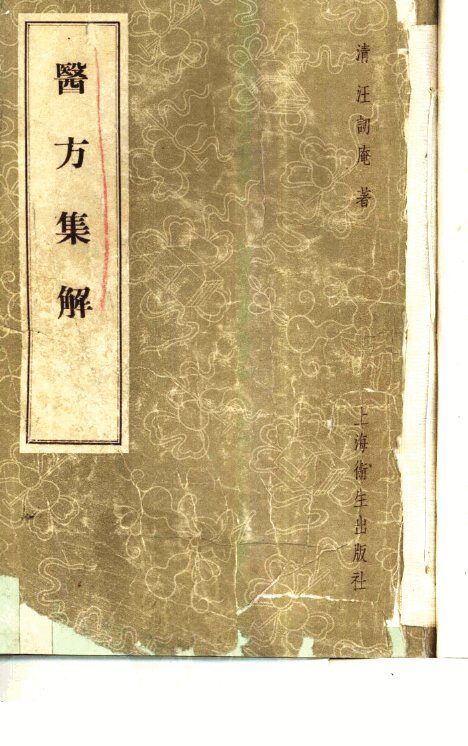 醫方集解
清 汪訒庵 著
上海衞生出版社